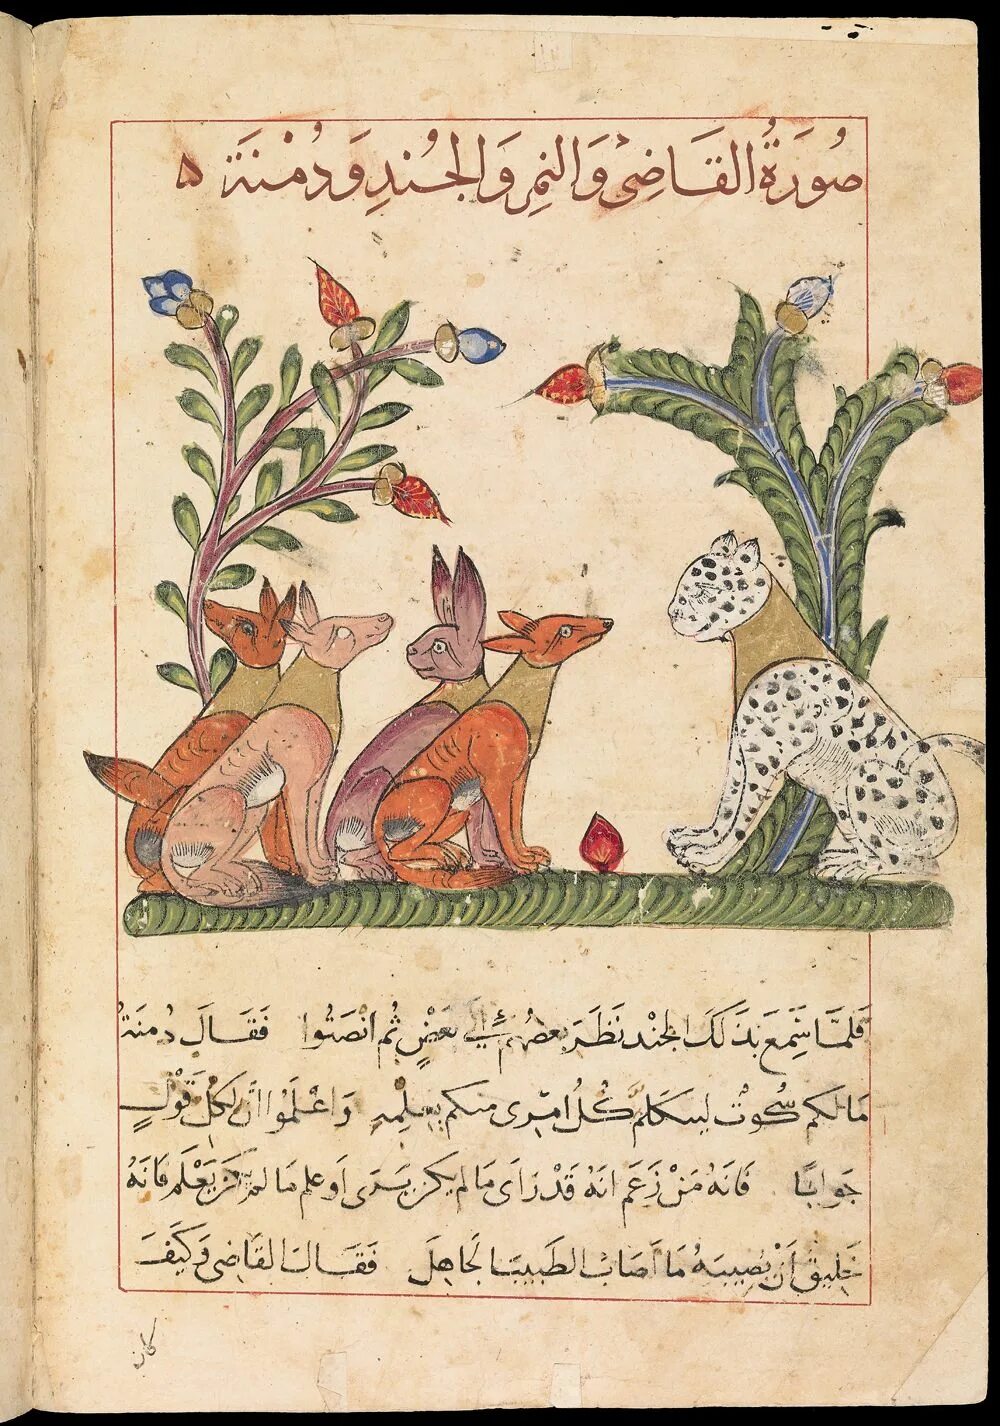 صُورَةُ القَاضِى وَالنمِرِ وَالجُندِ وَدُمْنَةَ ه
فَلمَّا سَمِعَ بذَلكَ الجُنْد نَظَرَ بعضُهُم إلَى بَعْضٍ ثُم انْصَتُوا فَقَالَ دُمنَةُ
مَالكم سُكُوتٌ ليتكلم كُلُ امرى منكم بعلمه وَاعْلَمُوا انَّ لكُلِ قَوْلٍ
جَوابًا فَانَهُ مَنْ زَعَم انَهُ قَدْ رَاى مَا لم يكن يَرَى اوعلم مَا لم يكن يَعْلَم فَانَهُ
خَليقٌ أنْ يُصِيبَهُ مَا أصَابَ الطَبيبَ الجَاهِلَ فَقَالَ القَاضِى وَكَيْفَ
كان